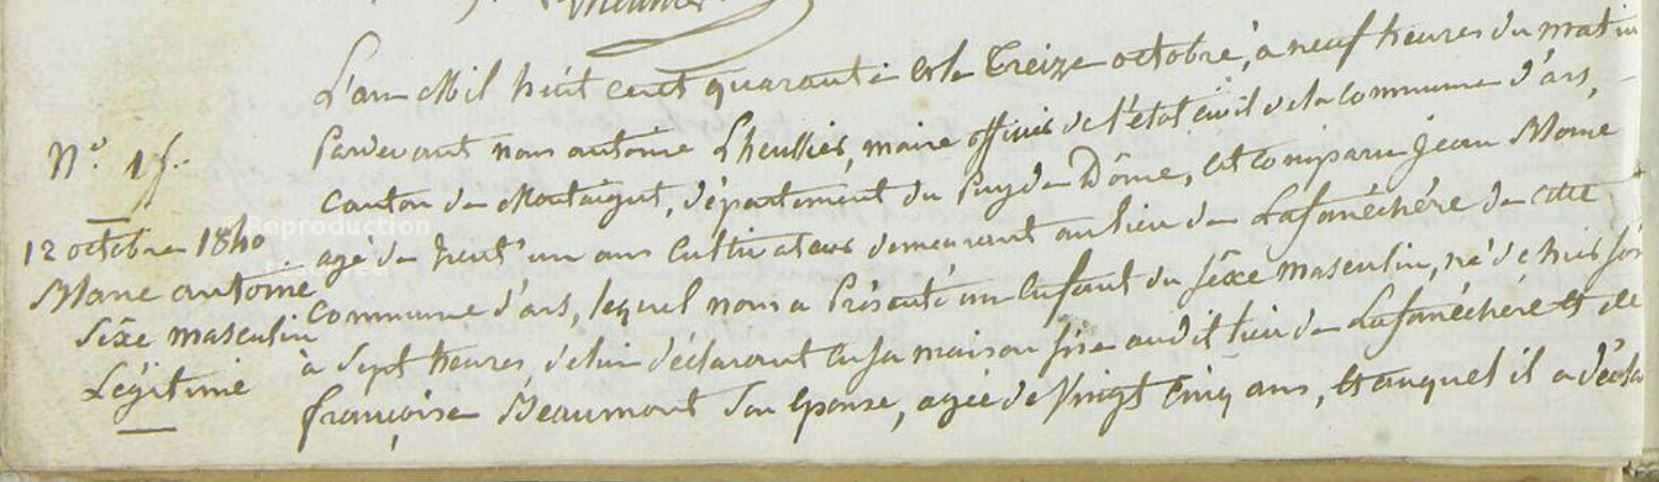 N.º 15.
12 octobre 1840
Mone antoine
Séxe masculin
Légitime
L'an Mil huit cent quarante et le treize octobre, à neuf heures du matin
Pardevant nous antoine Lheullier, maire officier de l'état civil de la commune d'ars,
canton de Montaigut, département du Puy de Dôme, est comparu jean Mone
agé de trent'un ans cultivateur demeurant au lieu de Lafanéchére de cette
commune d'ars, lequel nous a Présenté un Enfant du séxe masculin, né d'hier soir
à sept heures, de lui déclarant en sa maison sise audit lieu de Lafanéchére et de
françoise Beaumont son Epouse, agée de Vingt cinq ans, Et auquel il a décla